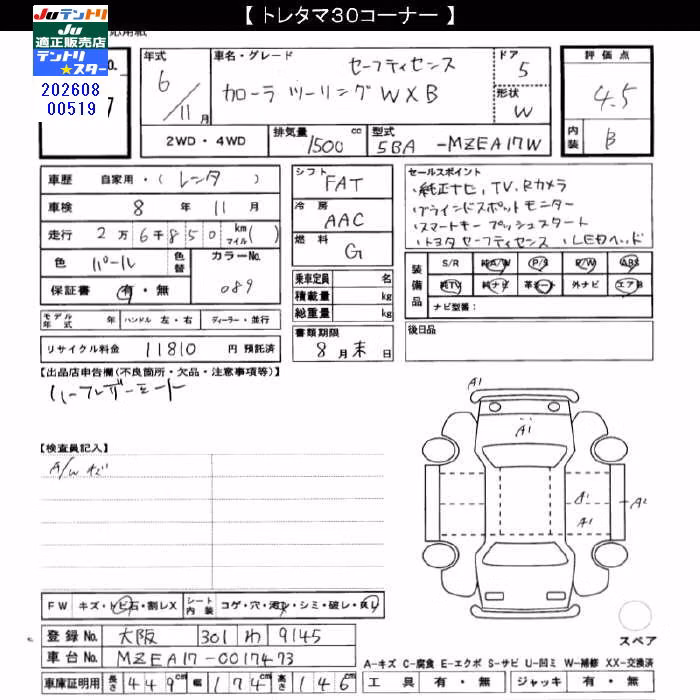 【 トレタマ30コーナー 】
Juテントリ
Ju
適正販売店
テントリ
★スター
202608
00519
7
年式
6/11月
車名・グレード
セーフティセンス
カローラ ツーリング WXB
ドア
5
形状
W
評価点
4.5
内装
B
2WD・4WD
排気量
1500 cc
型式
5BA-MZEA17W
車歴 自家用・(レンタ)
車検 8年 11月
走行 2万6千850 km マイル( )
色 パール
色替
カラーNo.
089
保証書 有・無
モデル年式 年 ハンドル 左・右 ディーラー・並行
リサイクル料金 11810 円 預託済
シフト
FAT
冷房
AAC
燃料
G
乗車定員 名
積載量 kg
総重量 kg
書類期限
8月末日
セールスポイント
・純正ナビ,TV,Rカメラ
・ブラインドスポットモニター
・スマートキー プッシュスタート
・トヨタセーフティセンス ・LEDヘッド
装備品
S/R 純A/W P/S P/W ABS
純TV 純ナビ 革シート 外ナビ エアB
ナビ型番:
後日品
【出品店申告欄(不良箇所・欠品・注意事項等)】
ハーフレザーシート
【検査員記入】
A/Wキズ
A1
A1
A1
A1
A2
FW キズ・トビ石・割レX
シート内装 コゲ・穴・汚レ・シミ・破レ・スレ
登録No. 大阪 301 わ 9145
車台No. MZEA17-0017473
車庫証明用 長さ 449cm 幅 174cm 高さ 146cm
スペア
A-キズ C-腐食 E-エクボ S-サビ U-凹ミ W-補修 XX-交換済
工具 有・無 ジャッキ 有・無